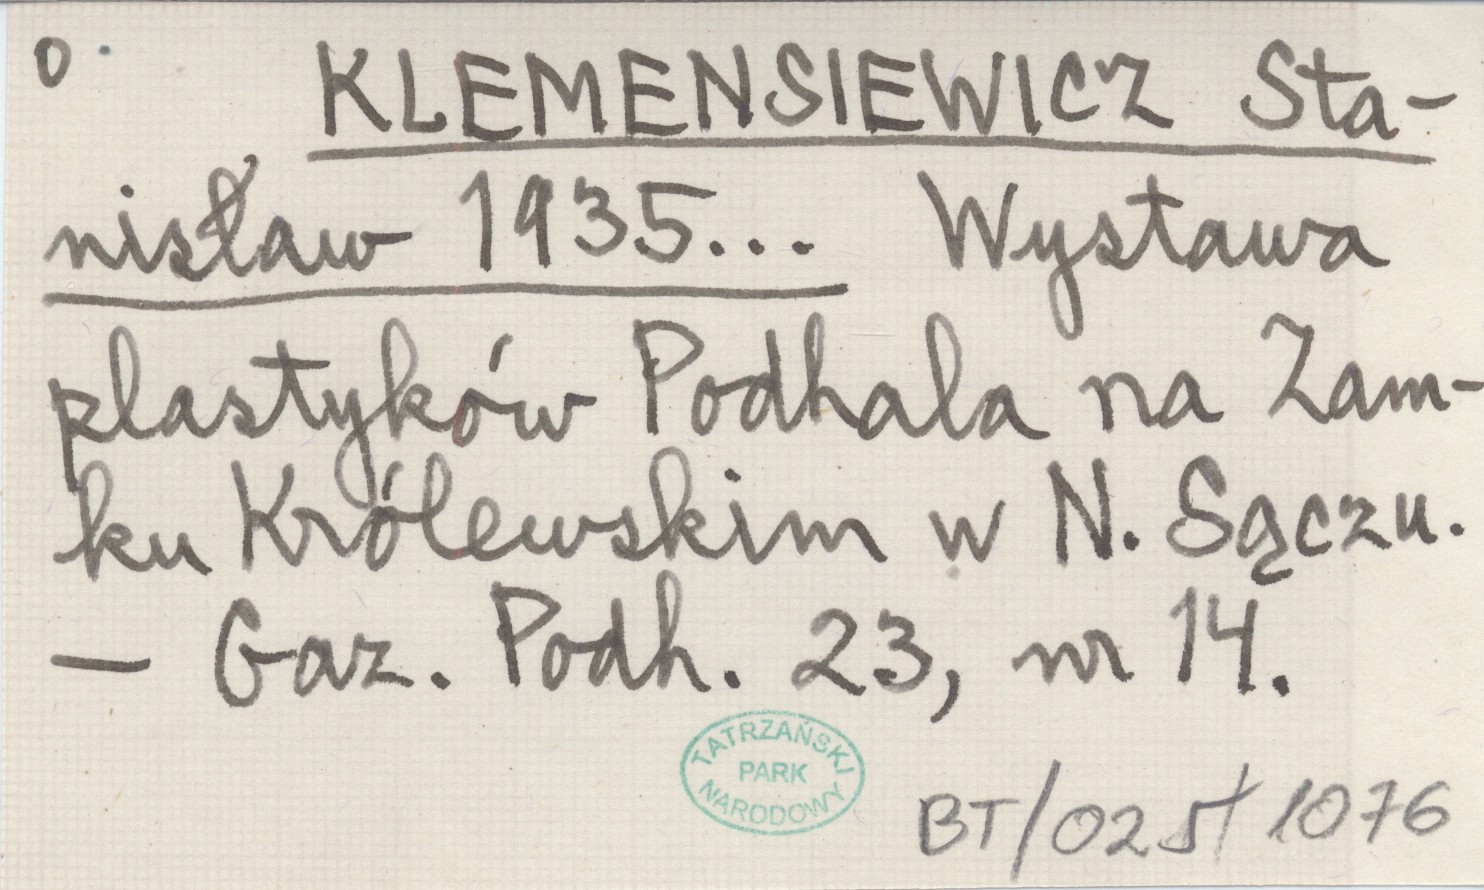 0 KLEMENSIEWICZ Sta-
nisław 1935... Wystawa
plastyków Podhala na Zam-
ku Królewskim w N. Sączu.
— Gaz. Podh. 23, nr 14.
TATRZAŃSKI
PARK
NARODOWY
BT/025/1076